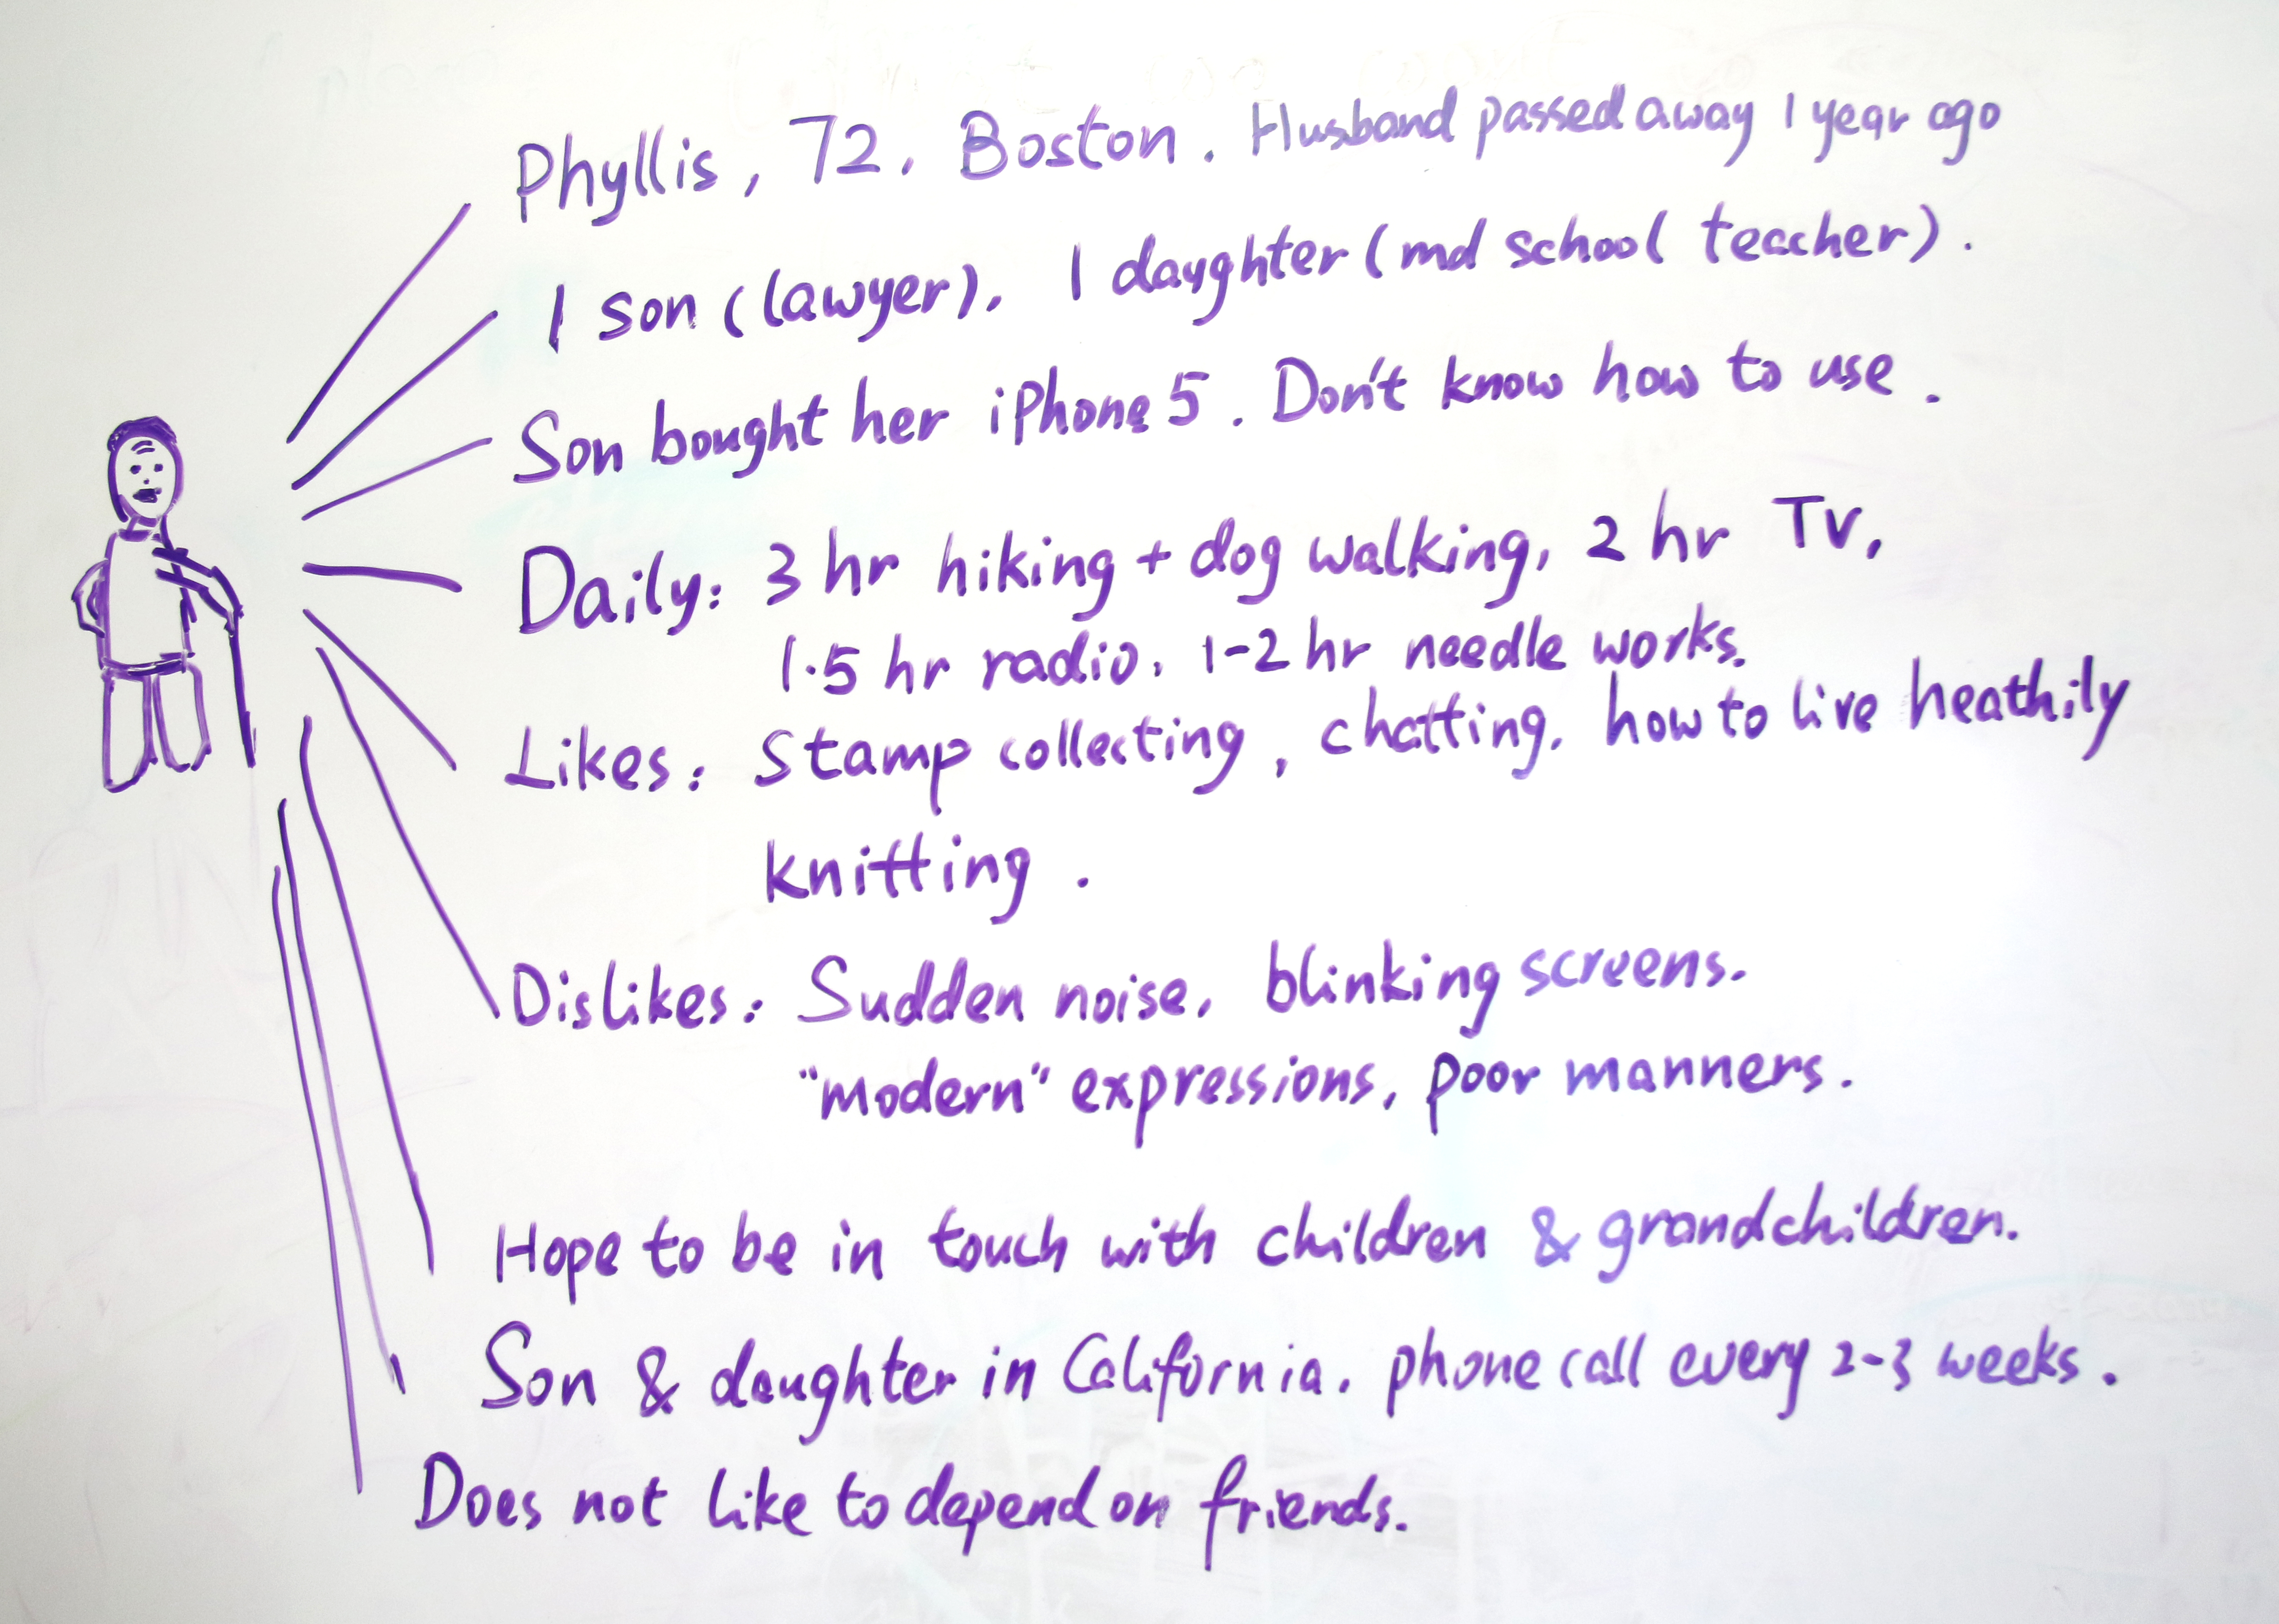 Phyllis, 72, Boston. Husband passed away 1 year ago
1 son (lawyer), 1 daughter (md school teacher).
Son bought her iPhone 5. Don't know how to use.
Daily: 3 hr hiking + dog walking, 2 hr TV,
1.5 hr radio, 1-2 hr needle works.
Likes: Stamp collecting, chatting, how to live heathily
knitting.
Dislikes: Sudden noise, blinking screens.
"modern" expressions, poor manners.
Hope to be in touch with children & grandchildren.
Son & daughter in California. phone call every 2-3 weeks.
Does not like to depend on friends.